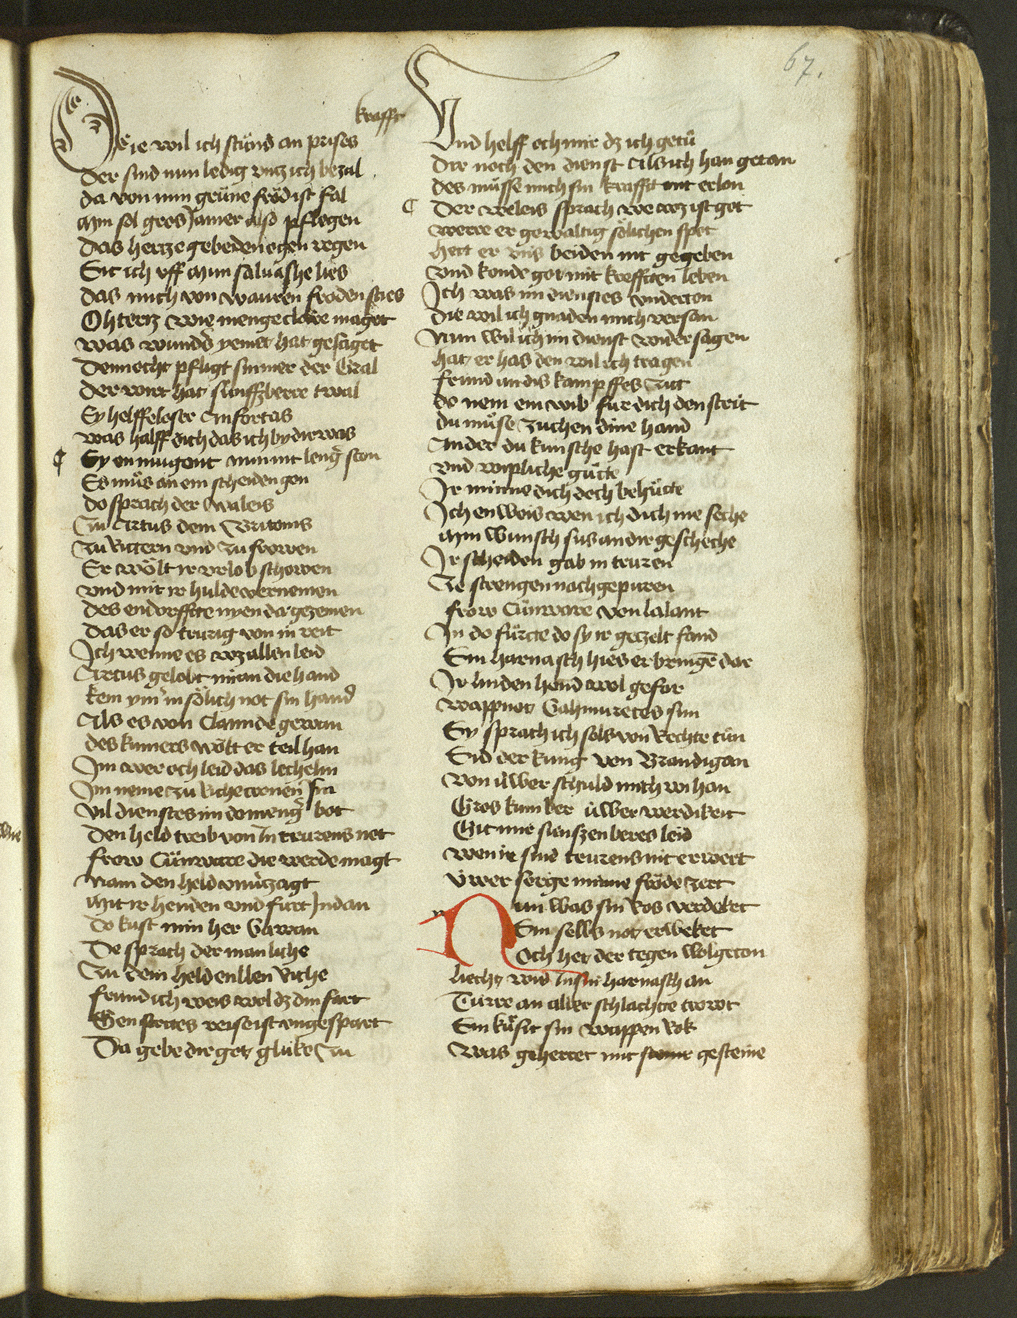 67.
krafft
Die wil ich stůnd an prises
Der sind nun ledig vntz ich bezal
da von min grüne fröd ist fal
Mym sol gros Jamer also pflegen
das hertze gebe den ogen regen
Sit ich vff Mun saluasche lies
das mich von wauren froden sties
Oh hertz wie menge clare maget
was wunders yemer hat gesaget
Dennocht pfligt sin mer der Gral
der wirt hat süffzbere twal
Ey helffeloser Anfortas
was halff dich das ich by dir was
Sy en mugent nun nit lenger ston
Es můs an ein scheiden gon
do sprach der waleis
Zů Artus dem Britonis
Zu Rittern vnd zu frowen
Er wölt ir vrlob schowen
vnd mit ir hulde vernemen
des endorffte nyendar gezemen
das er so trurig von in reit
Ich wenne es waz allen leid
Artus gelobt im an die hand
kem ym in sölich not sin hand
Als es von Clamide gewan
des kumers wolt er teil han
Im wer och leid das lechelin
Im neme zu riche cronen sin
vil dienstes im do menger bot
Den held treib von in trurens not
frow Cunware die werde magt
Nam den held vnuerzagt
Mit ir henden vnd fůrt Jn dan
Do kust min her Gawan
Do sprach der manliche
Zu dem held ellen riche
frund ich weis wol dz din fart
Gen strites reise ist vngespart
Da gebe dir got glüke zu
Vnd helff och mir dz ich getů
Dir noch den dienst Als ich han getan
des můsse mich sin krafft erlon
Der waleis sprach we waz ist got
were er gewaltig sölichen spot
hett er vns beiden nit gegeben
vnd konde got mit krefften leben
Ich was im dienstes vnderton
die wil ich gnaden mich versan
Nun wil ich im dienst wider sagen
hat er has den wil ich tragen
frund an dis kampffes zit
do nem ein wib für dich den strit
du můse zuchen dine hand
An der du künsche hast erkant
vnd wipliche gůtte
Ir minne dich doch behůtte
Ich en weis wen ich dich me seche
Mym wunsch sus an dir gescheche
Ir scheiden gab in truren
Ze strengen nachgepuren
frow Cunware von lalant
In do fürte do sy ir gezelt fand
Sin harnasch hies er bringen dar
Ir linden hend wol gefar
wappnot Gahmuretes sun
Sy sprach ich sols von rechte tůn
Sid der kung von Brandigan
von üwer schuld mich wil han
Gros kumber üwer werdikeit
Git mir süfszenberes leid
wen ir sind trurens nit erwert
üwer sorge mine fröde zert
Nun was sin Ros verdeket
Sin selbs not erweket
Och het der tegen wolgeton
liecht wis ysin harnasch an
Türe an aller schlachte trot
Sin kürsit sin wappen rok
was geherret mit gesteine